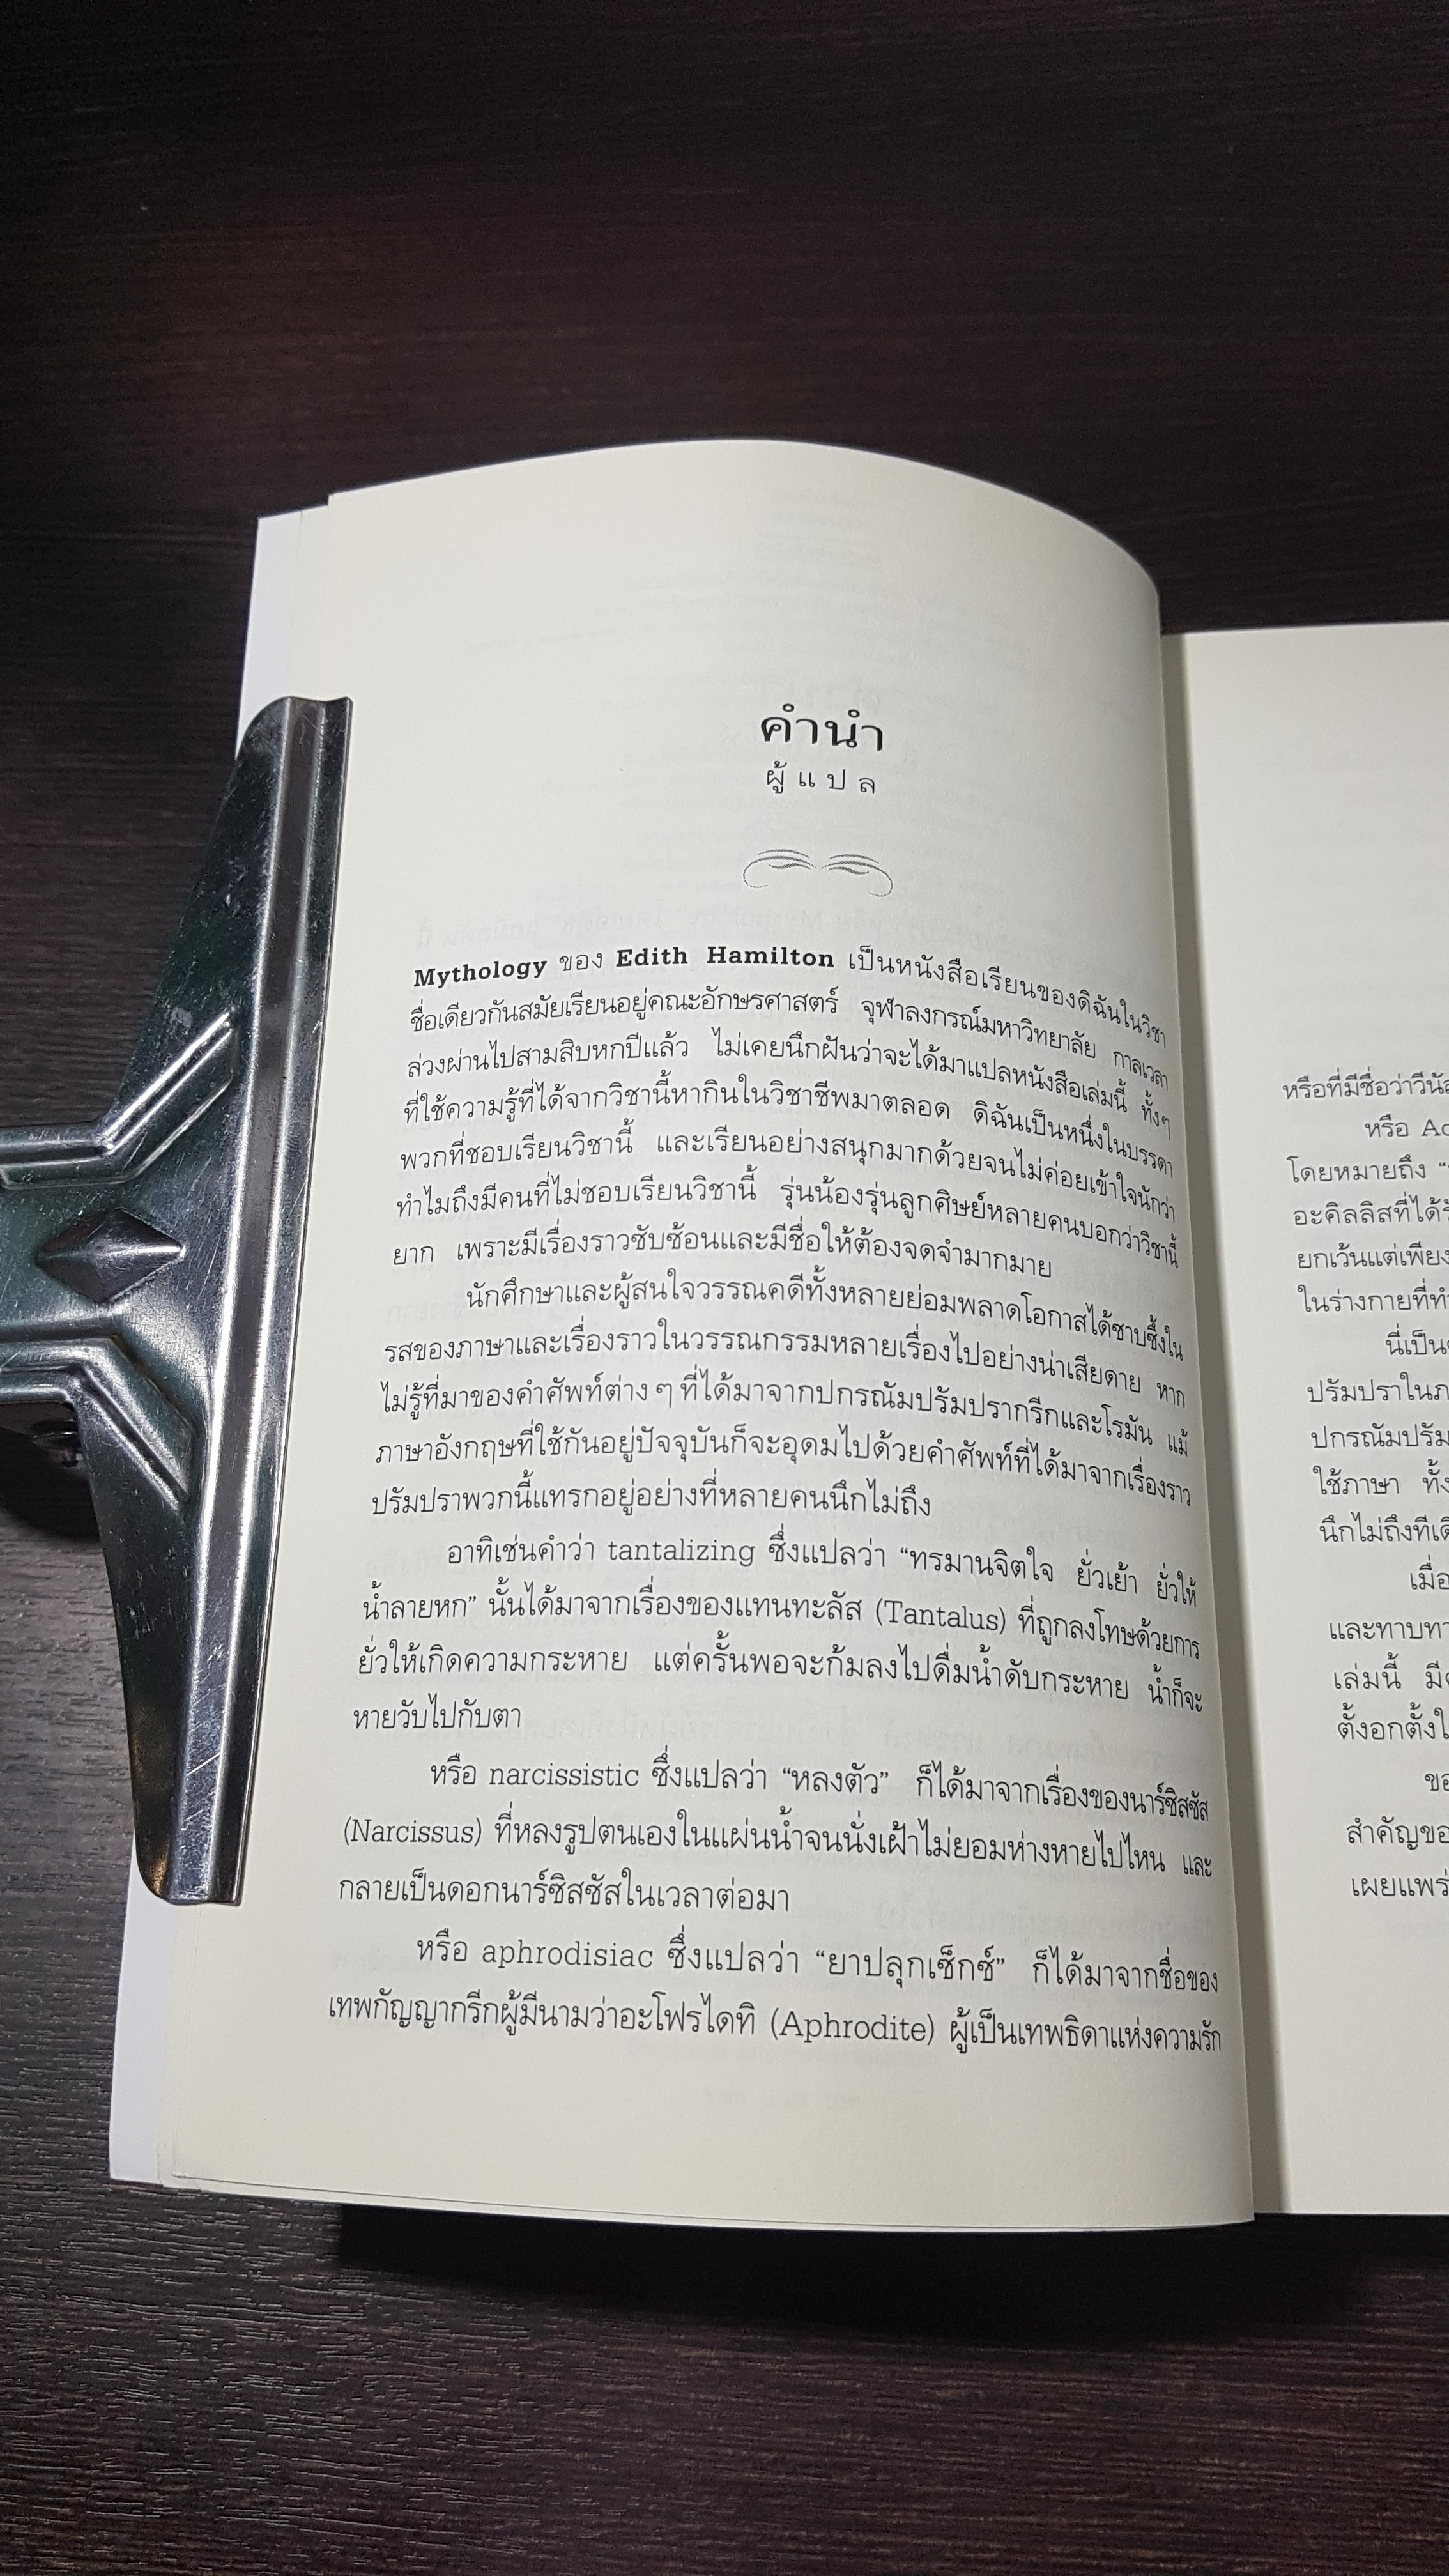 คำนำ
ผู้แปล
Mythology ของ Edith Hamilton เป็นหนังสือเรียนของดิฉันในวิชา
ชื่อเดียวกันสมัยเรียนอยู่คณะอักษรศาสตร์ จุฬาลงกรณ์มหาวิทยาลัย กาลเวลา
ล่วงผ่านไปสามสิบหกปีแล้ว ไม่เคยนึกฝันว่าจะได้มาแปลหนังสือเล่มนี้ ทั้งๆ
ที่ใช้ความรู้ที่ได้จากวิชานี้หากินในวิชาชีพมาตลอด ดิฉันเป็นหนึ่งในบรรดา
พวกที่ชอบเรียนวิชานี้ และเรียนอย่างสนุกมากด้วยจนไม่ค่อยเข้าใจนักว่า
ทำไมถึงมีคนที่ไม่ชอบเรียนวิชานี้ รุ่นน้องรุ่นลูกศิษย์หลายคนบอกว่าวิชานี้
ยาก เพราะมีเรื่องราวซับซ้อนและมีชื่อให้ต้องจดจำมากมาย
นักศึกษาและผู้สนใจวรรณคดีทั้งหลายย่อมพลาดโอกาสได้ซาบซึ้งใน
รสของภาษาและเรื่องราวในวรรณกรรมหลายเรื่องไปอย่างน่าเสียดาย หาก
ไม่รู้ที่มาของคำศัพท์ต่าง ๆ ที่ได้มาจากปกรณัมปรัมปรากรีกและโรมัน แม้
ภาษาอังกฤษที่ใช้กันอยู่ปัจจุบันก็จะอุดมไปด้วยคำศัพท์ที่ได้มาจากเรื่องราว
ปรัมปราพวกนี้แทรกอยู่อย่างที่หลายคนนึกไม่ถึง
อาทิเช่นคำว่า tantalizing ซึ่งแปลว่า “ทรมานจิตใจ ยั่วเย้า ยั่วให้
น้ำลายหก” นั้นได้มาจากเรื่องของแทนทะลัส (Tantalus) ที่ถูกลงโทษด้วยการ
ยั่วให้เกิดความกระหาย แต่ครั้นพอจะก้มลงไปดื่มน้ำดับกระหาย น้ำก็จะ
หายวับไปกับตา
หรือ narcissistic ซึ่งแปลว่า “หลงตัว” ก็ได้มาจากเรื่องของนาร์ซิสซัส
(Narcissus) ที่หลงรูปตนเองในแผ่นน้ำจนนั่งเฝ้าไม่ยอมห่างหายไปไหน และ
กลายเป็นดอกนาร์ซิสซัสในเวลาต่อมา
หรือ aphrodisiac ซึ่งแปลว่า “ยาปลุกเซ็กซ์” ก็ได้มาจากชื่อของ
เทพกัญญากรีกผู้มีนามว่าอะโฟรไดทิ (Aphrodite) ผู้เป็นเทพธิดาแห่งความรัก
หรือที่มีชื่อว่าวีนัส
หรือ
โดยหมายถึง
อะคิลลิสที่ได้
ยกเว้นแต่เพียง
ในร่างกายที่
นี่เป็น
ปรัมปราใน
ปกรณัมปรัม
ใช้ภาษา ทั้ง
นึกไม่ถึงที
เมื่อ
และทาบทา
เล่มนี้ มี
ตั้งอกตั้งใ
ขอ
สำคัญขอ
เผยแพร่